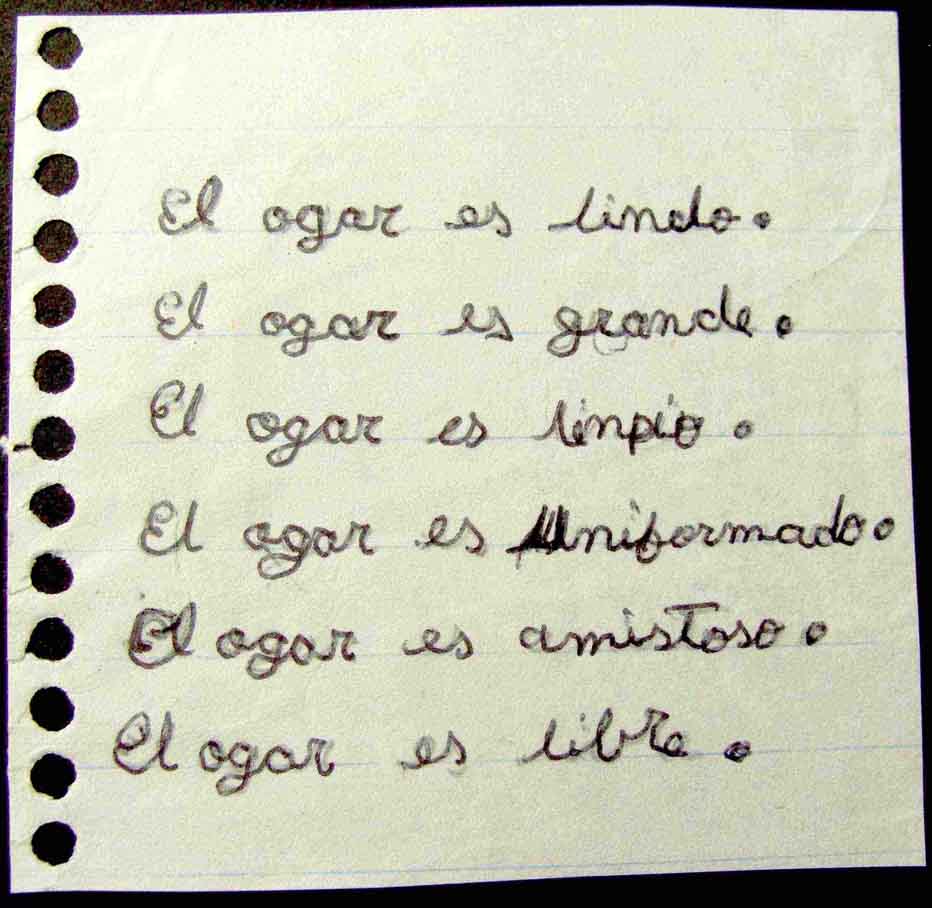 El ogar es lindo.
El ogar es grande.
El ogar es linpio.
El ogar es uniformado.
El ogar es amistoso.
El ogar es libre.